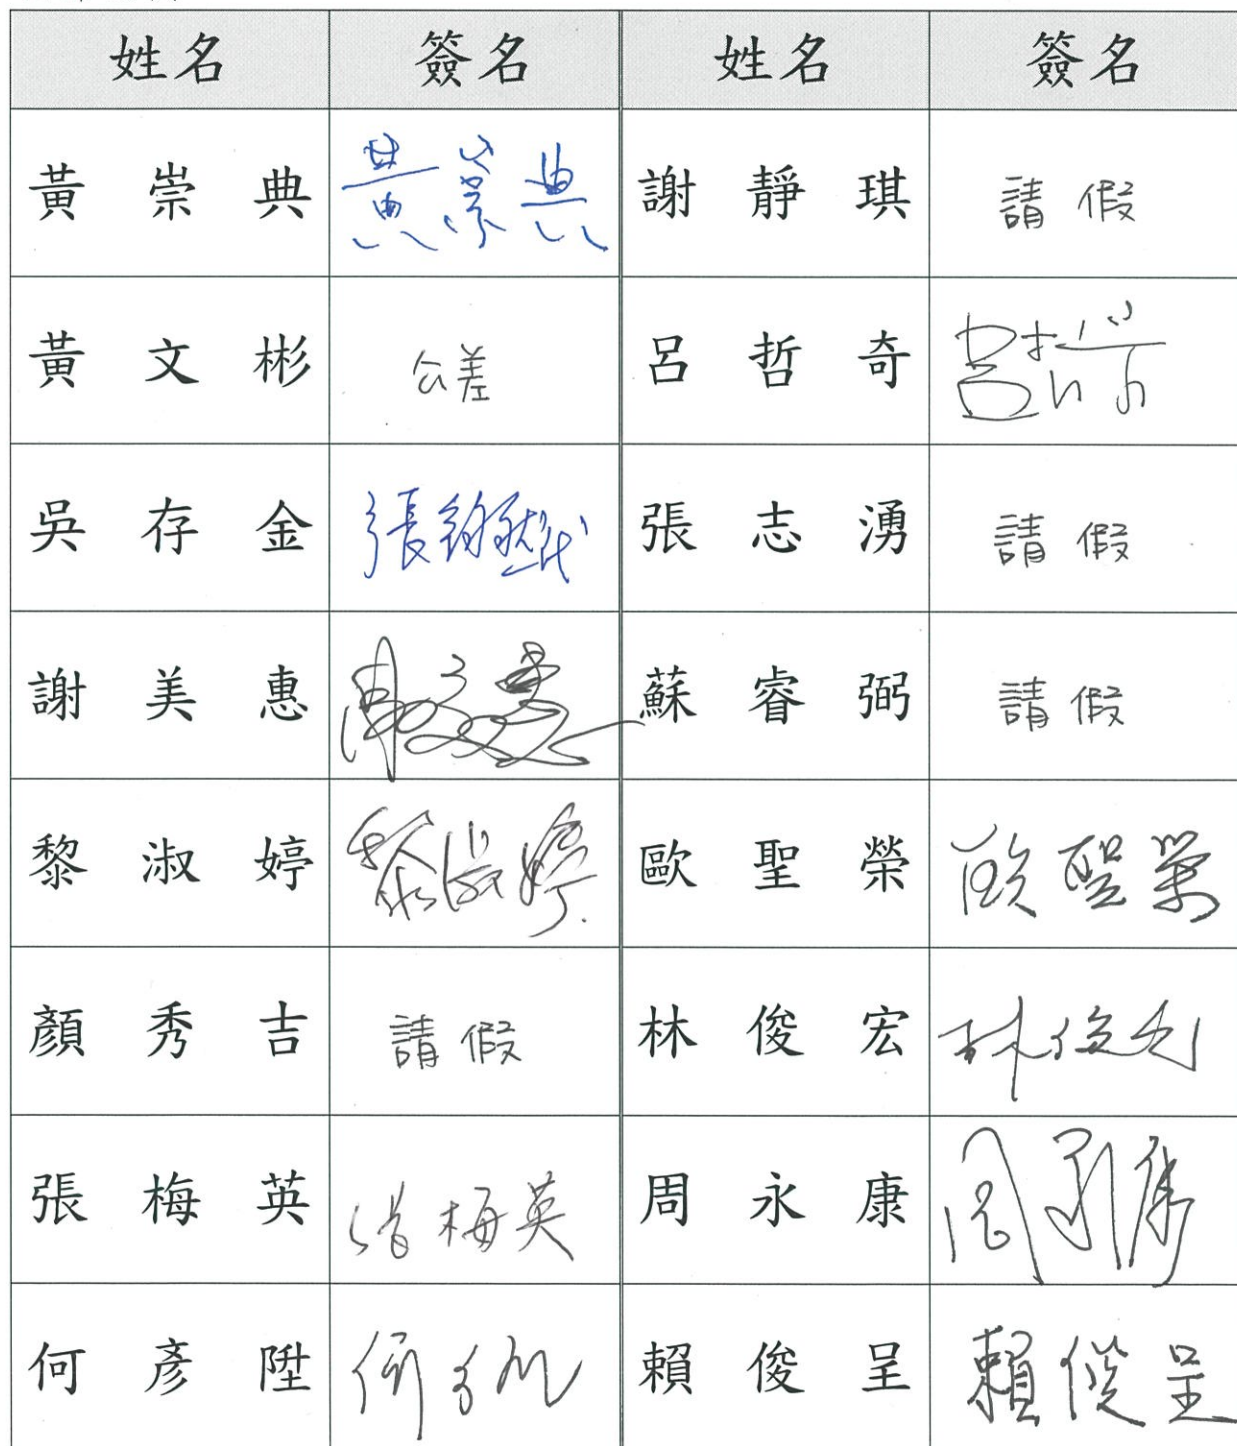 姓名 簽名 姓名 簽名
黃崇典 黃崇典 謝靜琪 請假
黃文彬 公差 呂哲奇 呂哲奇
吳存金 張 代 張志湧 請假
謝美惠 謝美惠 蘇睿弼 請假
黎淑婷 黎淑婷 歐聖榮 歐聖榮
顏秀吉 請假 林俊宏 林俊宏
張梅英 張梅英 周永康 周永康
何彥陞 何彥陞 賴俊呈 賴俊呈